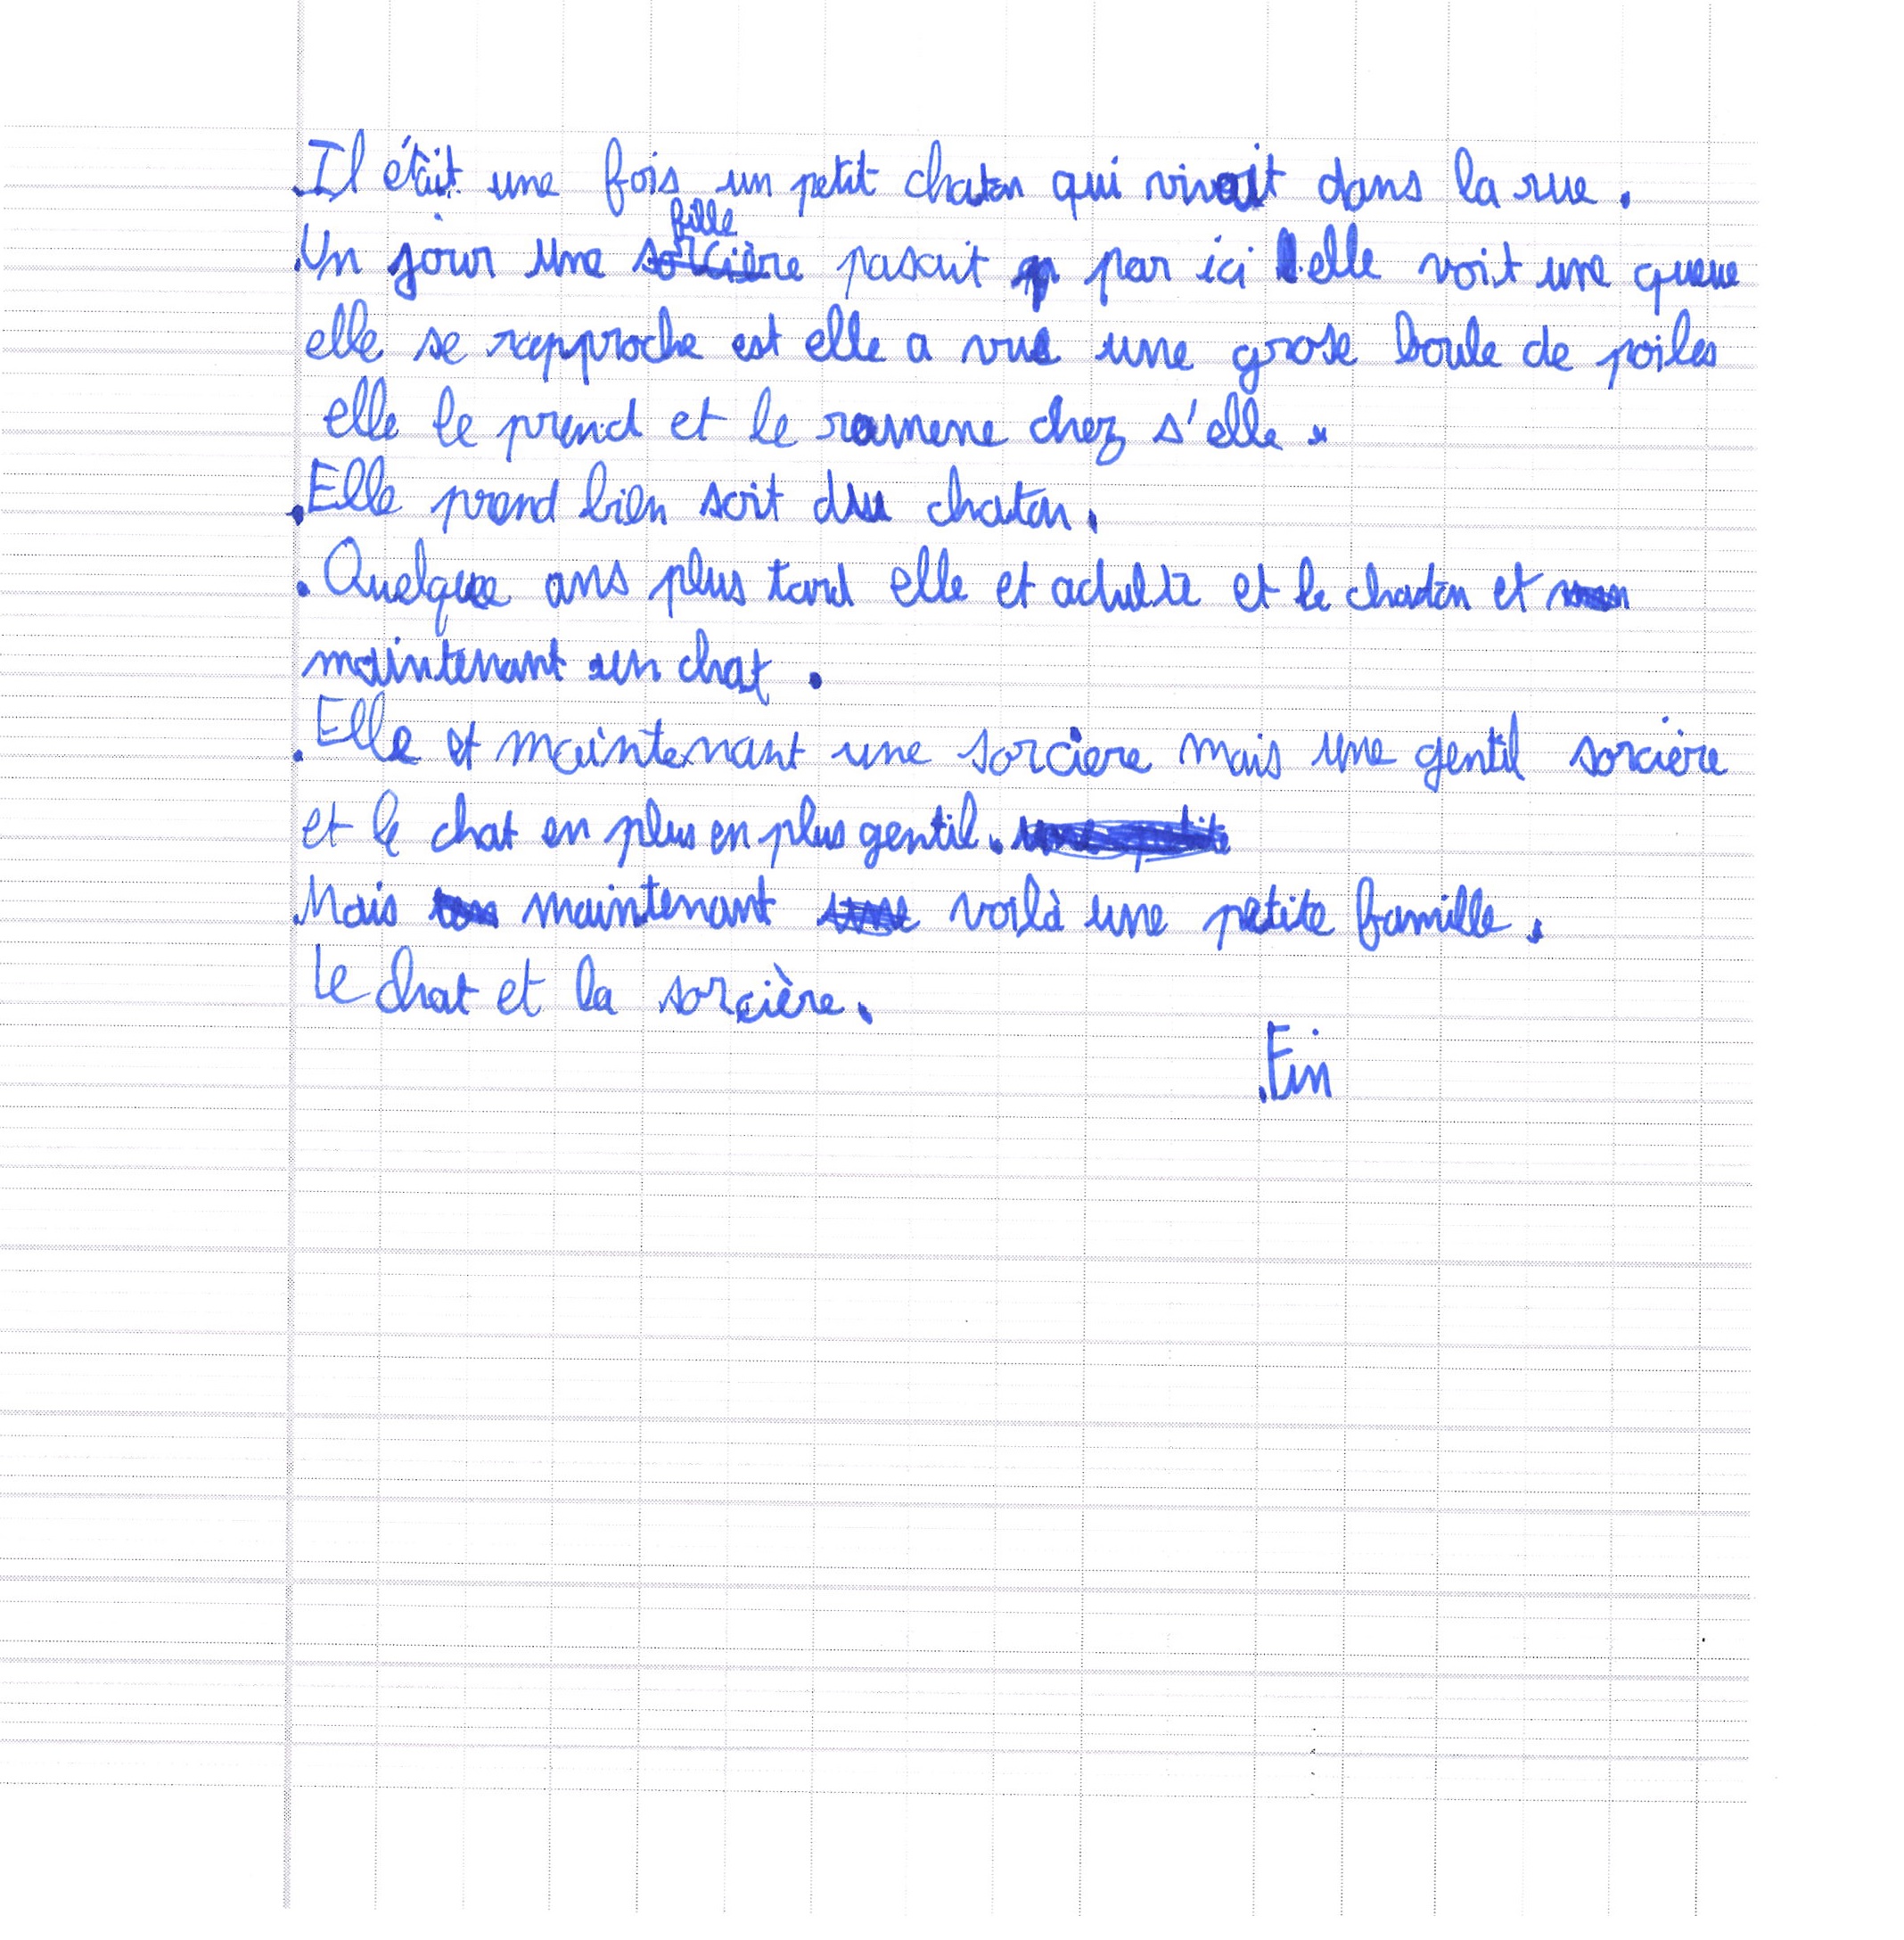 .Il était une fois un petit chaton qui vivait dans la rue.
.Un jour une fille pasait par ici elle voit une queue
elle se rapproche est elle a vue une grose boule de poiles
elle le prend et le ramene chez s'elle.
.Elle prend bien soit du chaton.
.Quelque ans plus tard elle et adulte et le chaton et
maintenant un chat.
.Elle et maintenant une sorciere mais une gentil sorcière
et le chat en plus en plus gentil.
.Mais maintenant voilà une petite famille.
Le chat et la sorcière.
.Fin